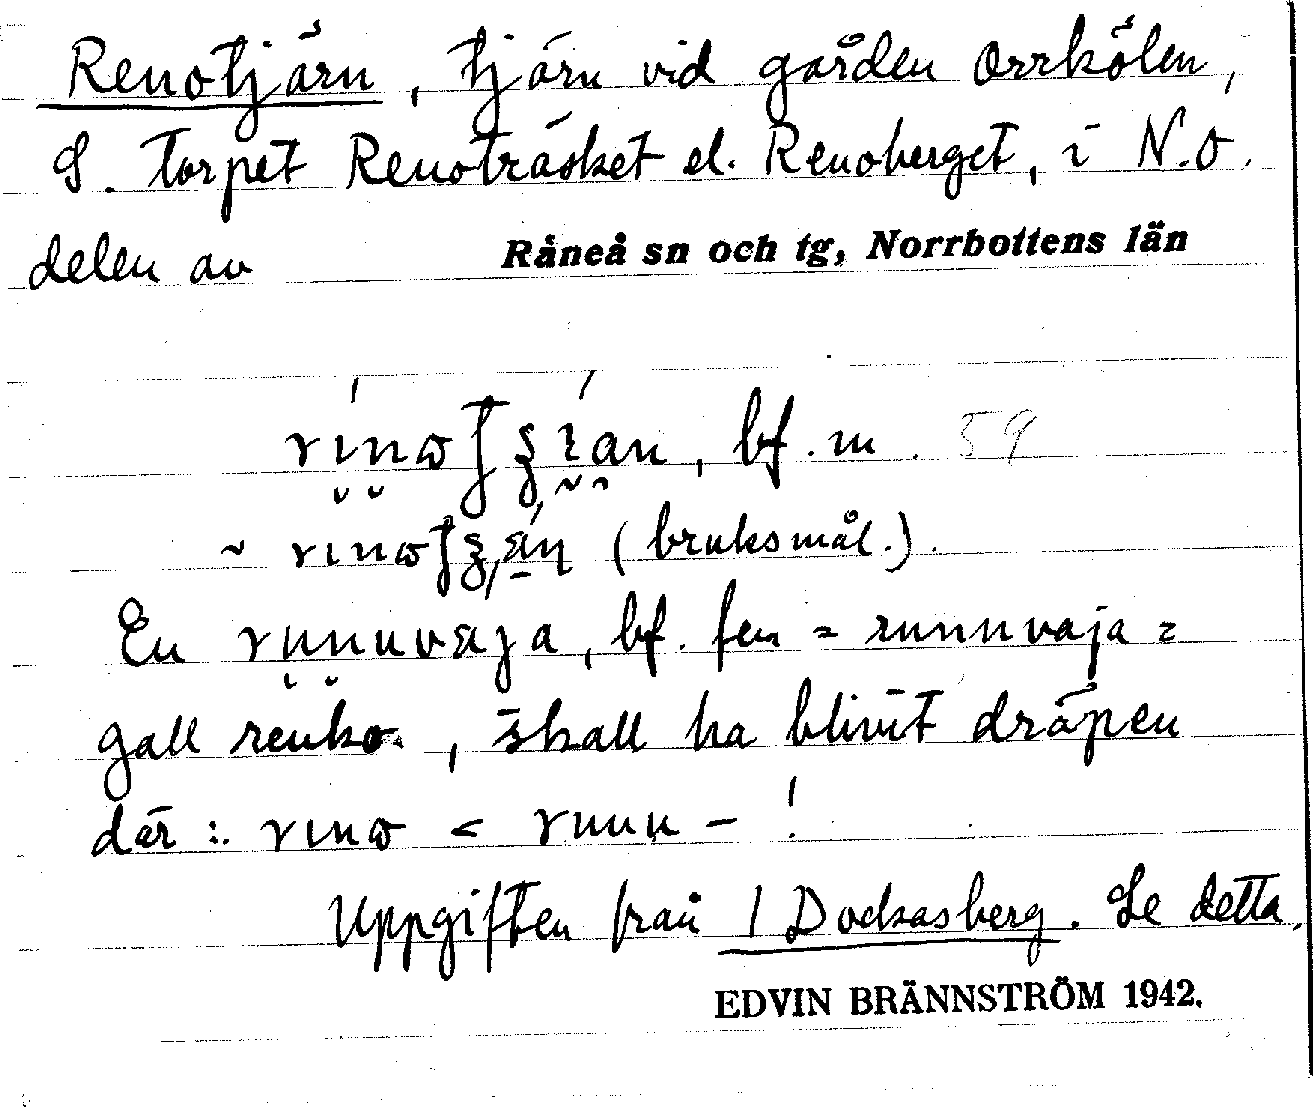 Renotjärn, tjärn vid gården Orrkölen,
S. torpet Renoträsket el. Renoberget, i N.O.
delen av Råneå sn och tg, Norrbottens län
bf. m. 59
~ (bruksmål.).
En runuvaja, bf. fem = runnvaja =
gall renko, skall ha blivit dräpen
där :. rınω < runu - !
Uppgiften från 1 Dockasberg. Se detta.
EDVIN BRÄNNSTRÖM 1942.